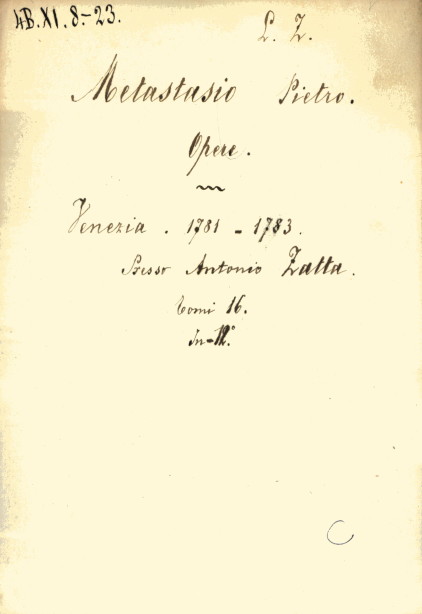 4B.XI.8.-23.
L. Z.
Metastasio Pietro.
Opere.
Venezia. 1781 - 1783.
Presso Antonio Zatta.
Tomi 16.
In-12°.
C